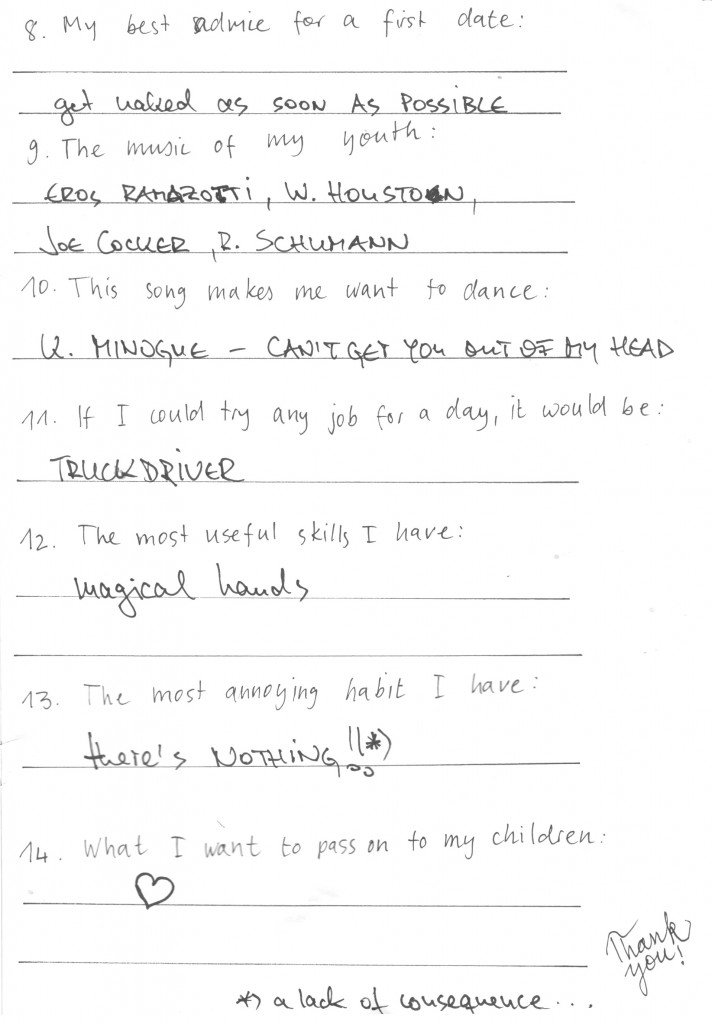 8. My best advice for a first date:
get naked as soon AS POSSIBLE
9. The music of my youth:
EROS RAMAZOTTI, W. HOUSTON,
JOE COCKER, R. SCHUMANN
10. This song makes me want to dance:
K. MINOGUE – CAN'T GET YOU OUT OF MY HEAD
11. If I could try any job for a day, it would be:
TRUCKDRIVER
12. The most useful skills I have:
magical hands
13. The most annoying habit I have:
there's NOTHING!!(*)
14. What I want to pass on to my children:
♡
Thank
you!
*) a lack of consequence...